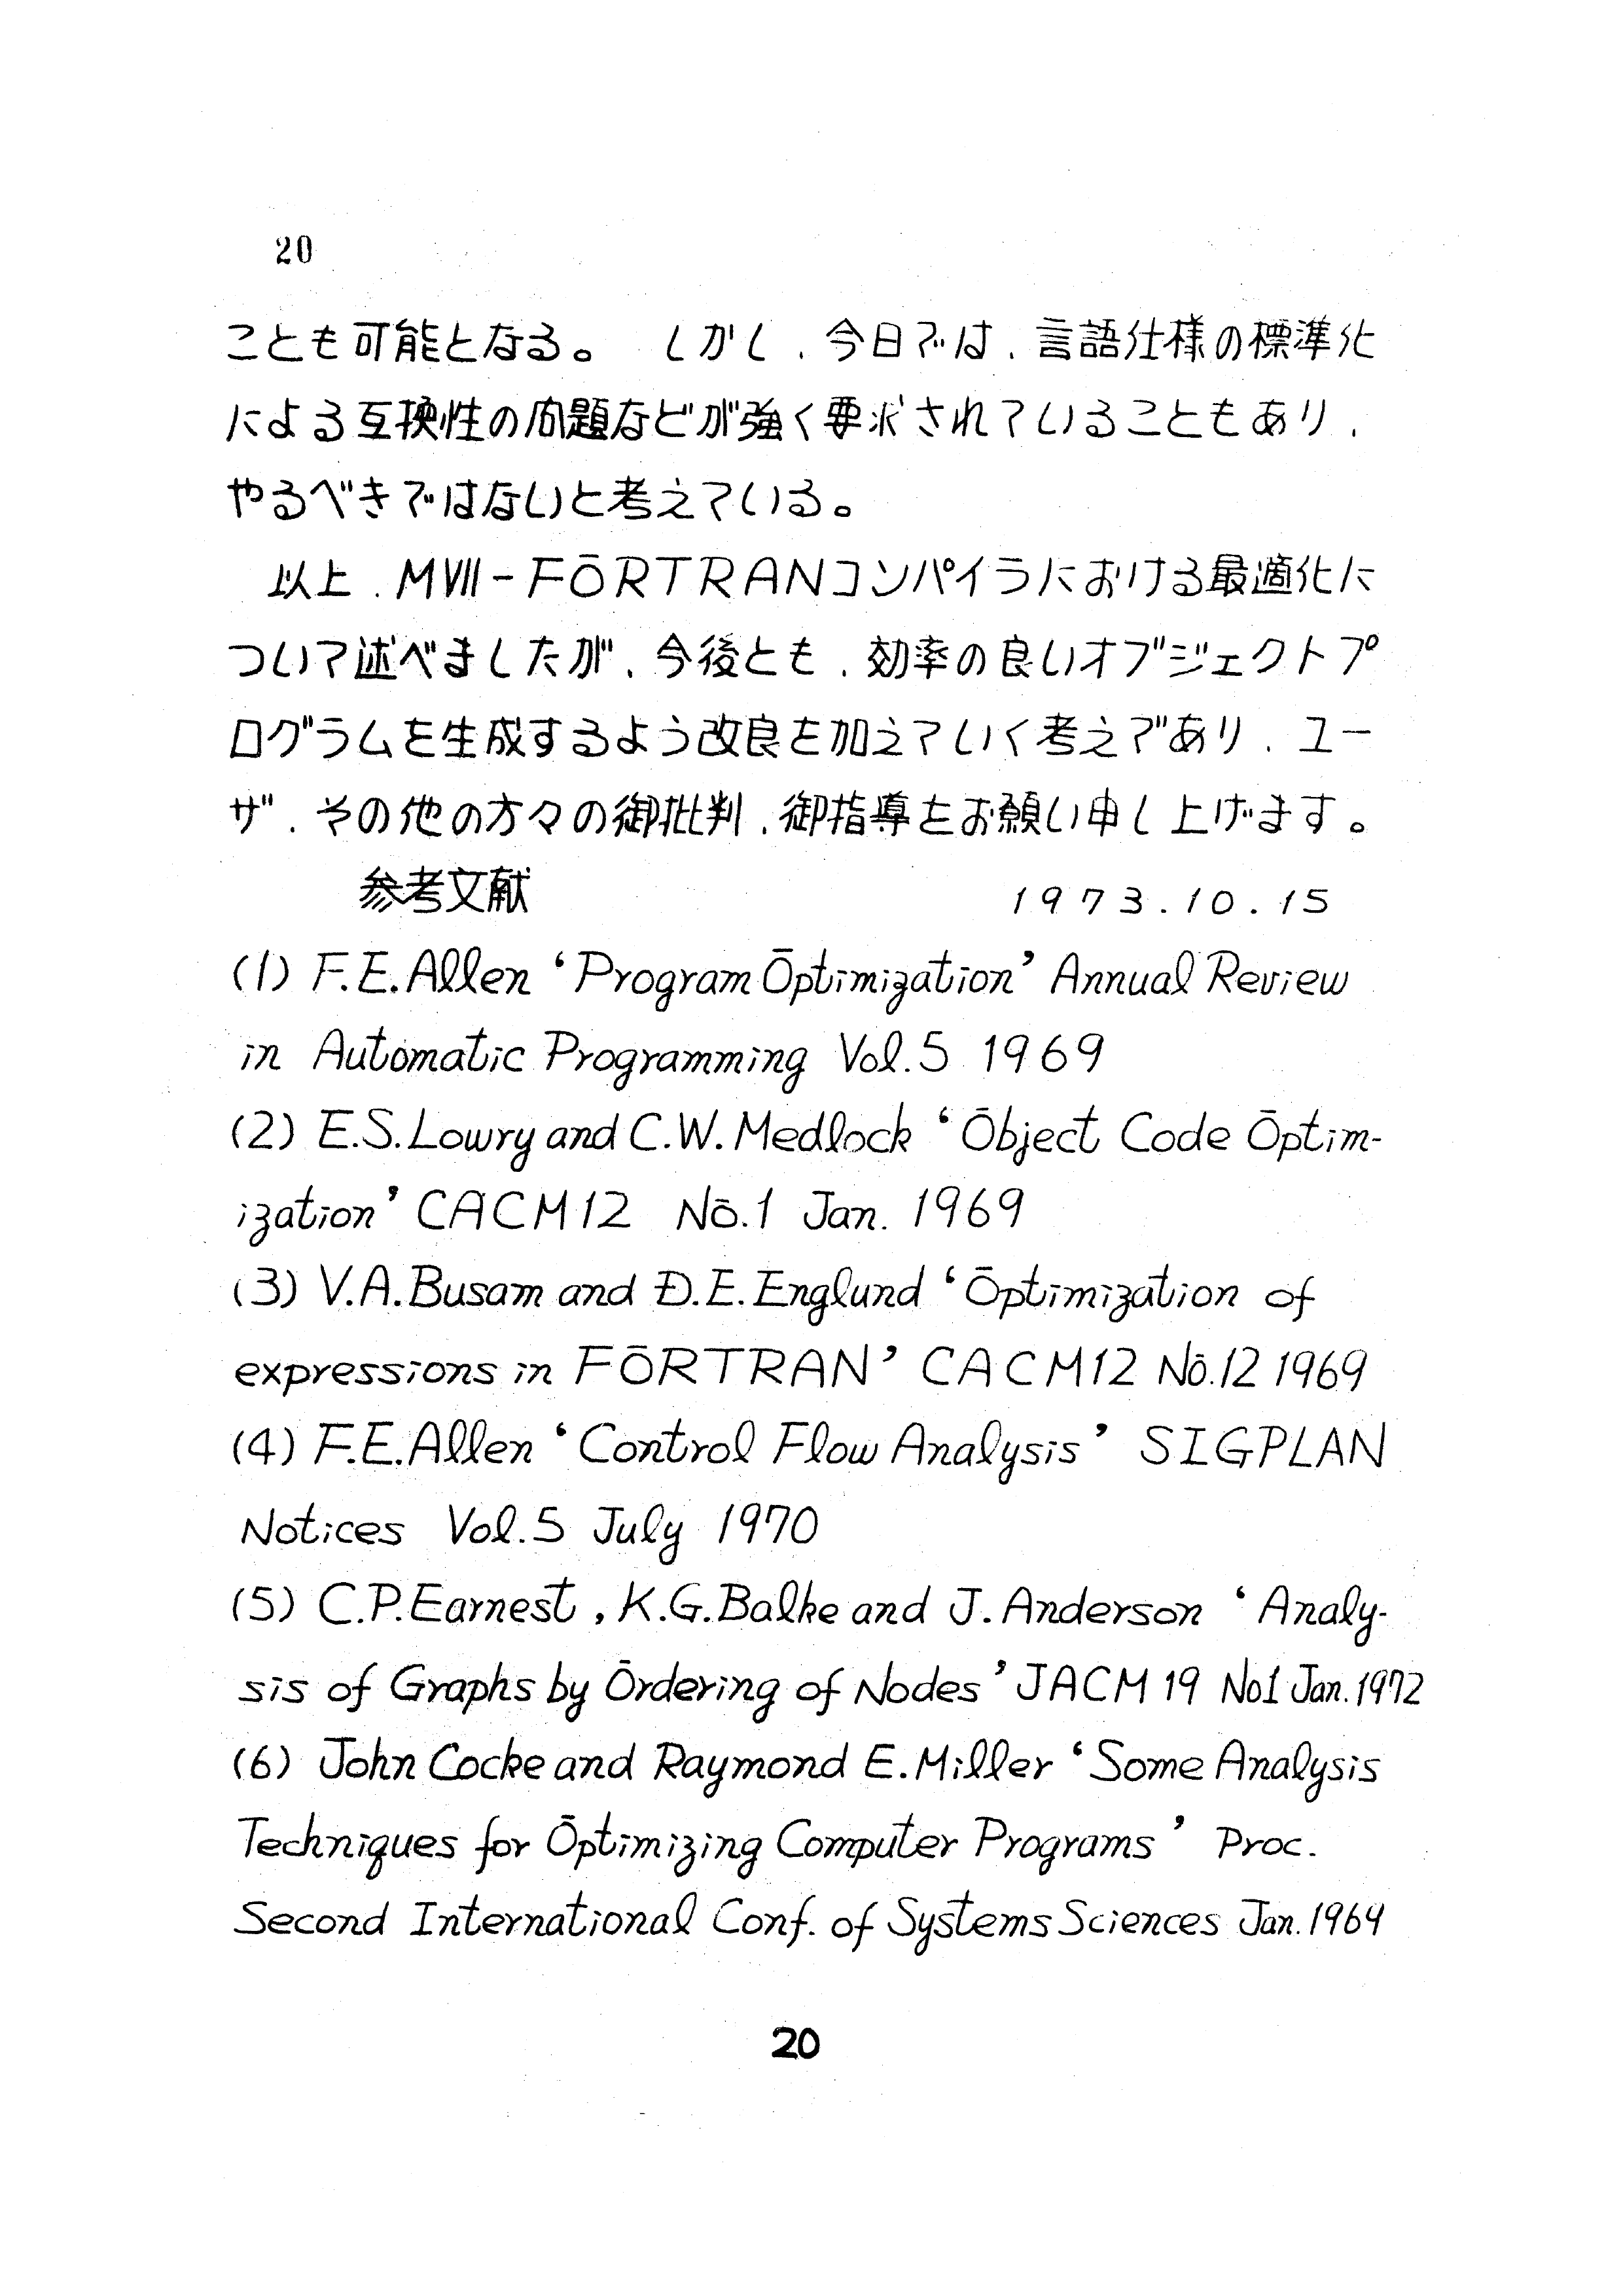 20
ことも可能となる。 しかし、今日では、言語仕様の標準化
による互換性の問題などが強く要求されていることもあり、
やるべきではないと考えている。
以上、MⅧ-FŌRTRANコンパイラにおける最適化に
ついて述べましたが、今後とも、効率の良いオブジェクトプ
ログラムを生成するよう改良を加えていく考えであり、ユー
ザ、その他の方々の御批判、御指導をお願い申し上げます。
参考文献 1973.10.15
(1) F.E.Allen ‘Program Ōptimization’ Annual Review
in Automatic Programming Vol.5 1969
(2) E.S.Lowry and C.W.Medlock ‘Ōbject Code Ōptim-
ization’ CACM12 Nō.1 Jan. 1969
(3) V.A.Busam and Đ.E.Englund ‘Ōptimization of
expressions in FŌRTRAN’ CACM12 Nō.12 1969
(4) F.E.Allen ‘Control Flow Analysis’ SIGPLAN
Notices Vol.5 July 1970
(5) C.P.Earnest, K.G.Balke and J.Anderson ‘Analy-
sis of Graphs by Ōrdering of Nodes’ JACM 19 No1 Jan.1972
(6) John Cocke and Raymond E.Miller ‘Some Analysis
Techniques for Ōptimizing Computer Programs’ Proc.
Second International Conf. of Systems Sciences Jan.1969
20